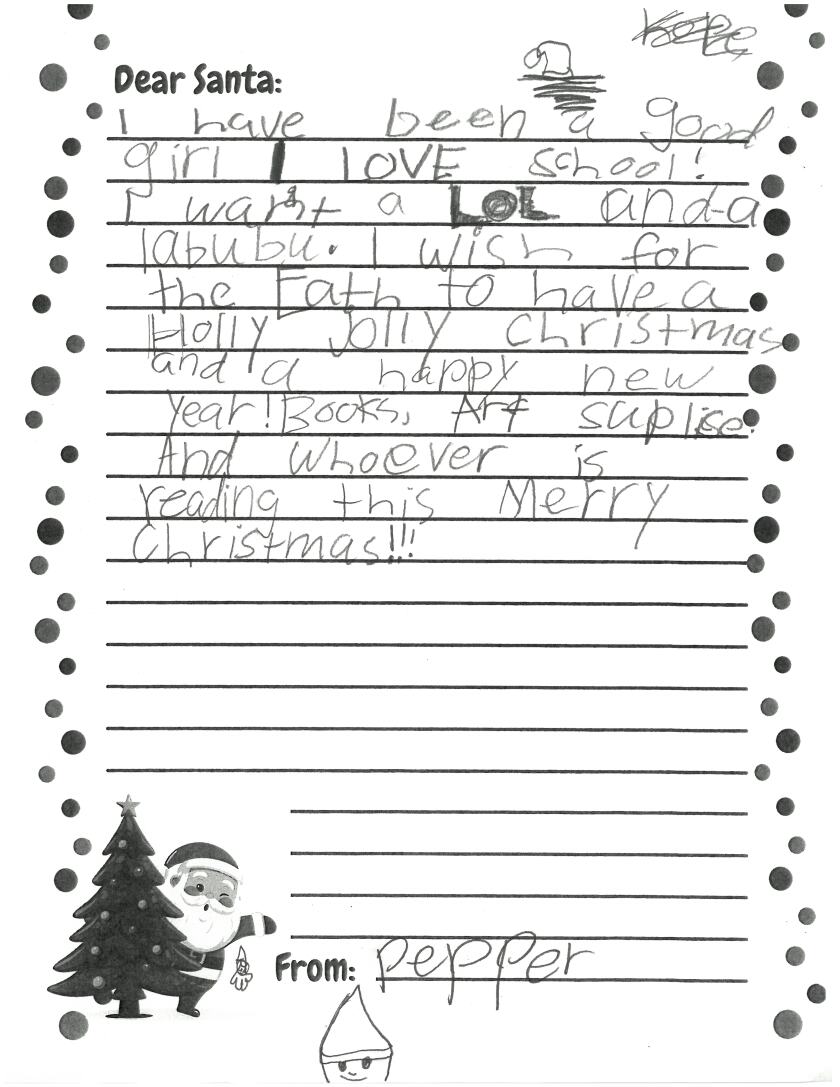 Dear Santa:
I have been a good
girl I lOVE school!
I want a LOL and-a
labubu. I wish for
the Eath to have a
Holly Jolly christmas
and a happy new
year! Books, Art suplise.
And whoever is
reading this Merry
Christmas!!!
From: pepper